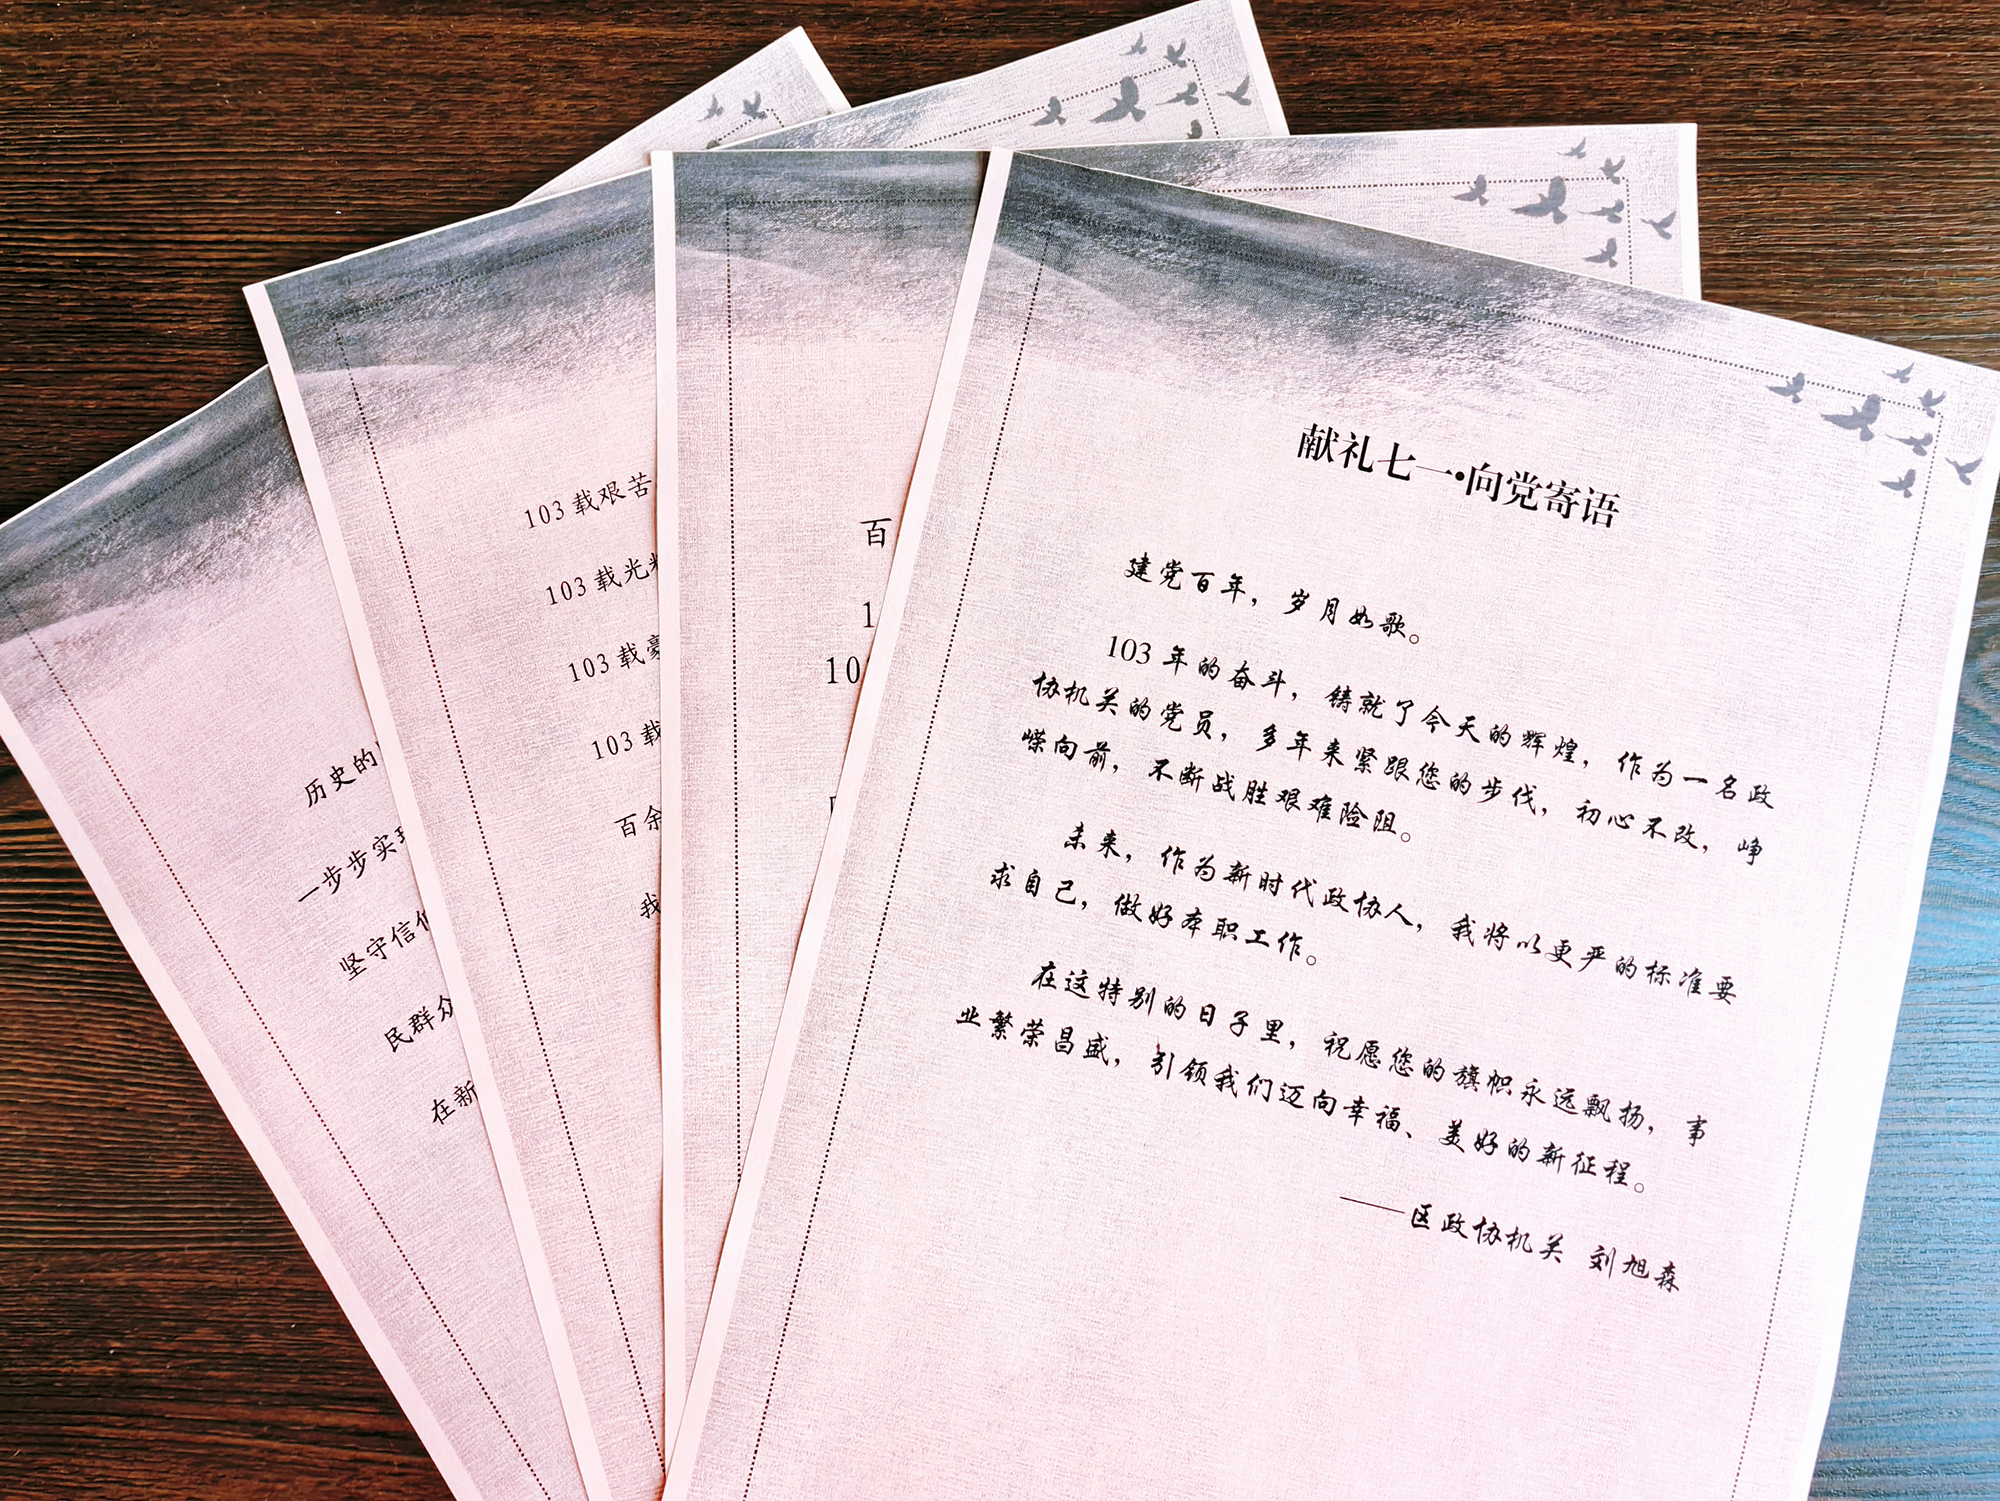 献礼七一·向党寄语
建党百年，岁月如歌。
103 年的奋斗，铸就了今天的辉煌，作为一名政
协机关的党员，多年来紧跟您的步伐，初心不改，峥
嵘向前，不断战胜艰难险阻。
未来，作为新时代政协人，我将以更严的标准要
求自己，做好本职工作。
在这特别的日子里，祝愿您的旗帜永远飘扬，事
业繁荣昌盛，引领我们迈向幸福、美好的新征程。
——区政协机关 刘旭森
百
1
10
103 载艰苦
103 载光
103 载豪
103 载
百余
我
历史的
一步步实
坚守信
民群众
在新